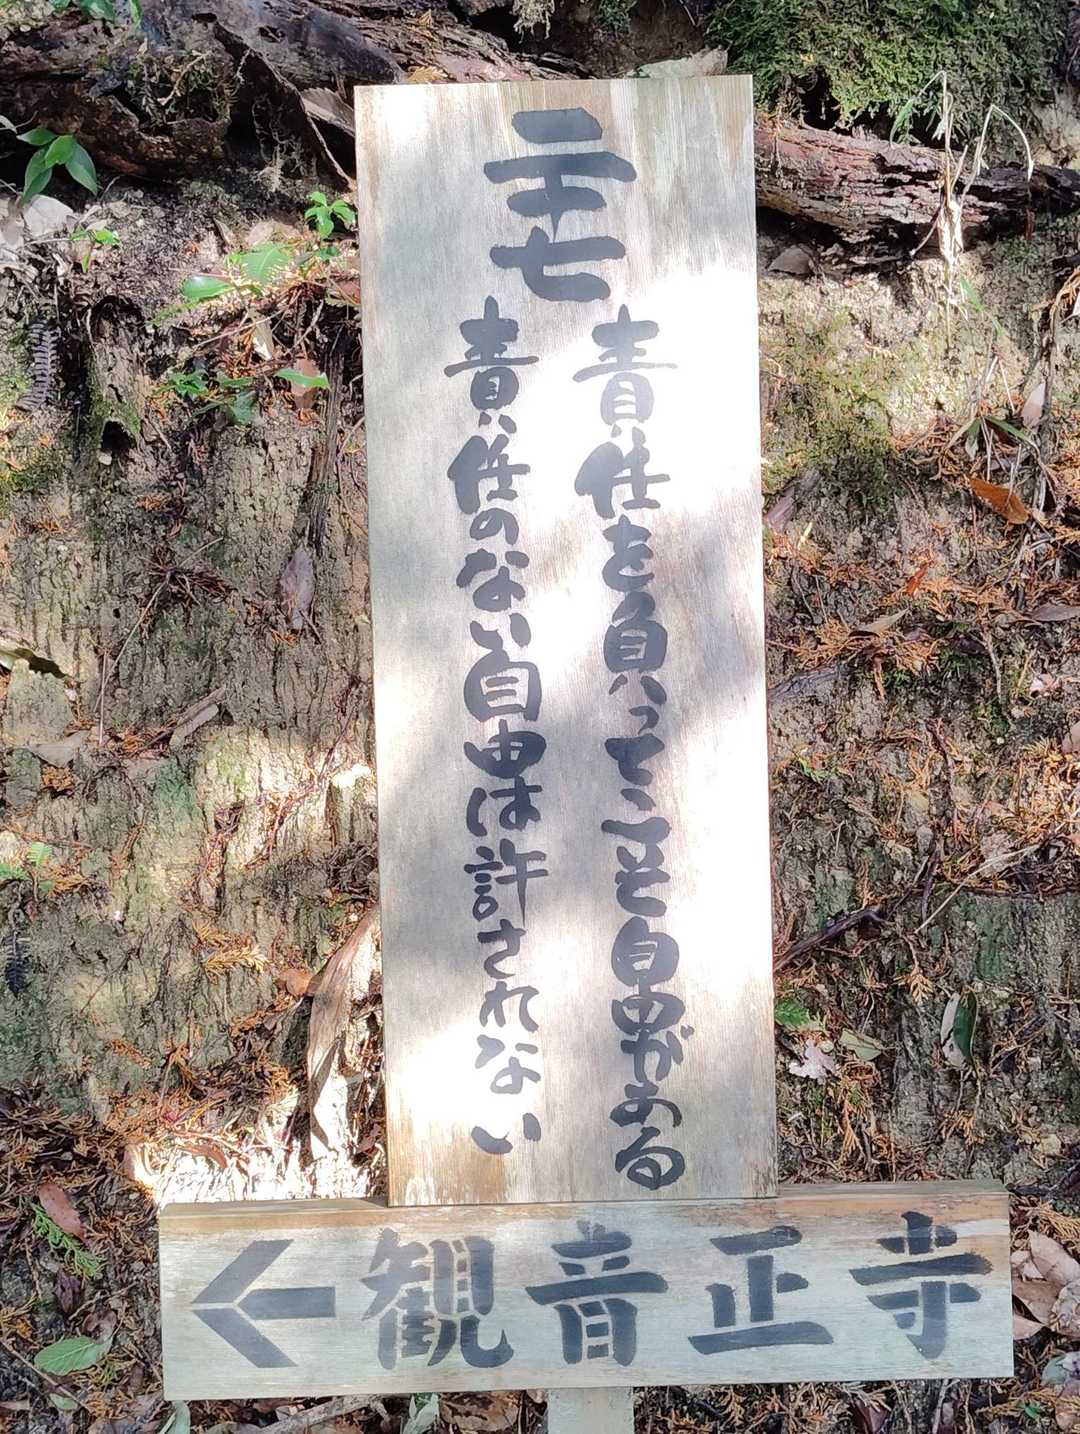 二十七
責任を負ってこそ自由がある
責任のない自由は許されない
← 観音正寺